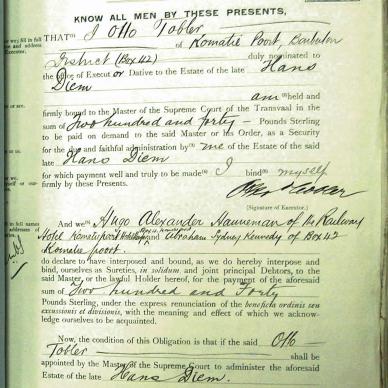 KNOW ALL MEN BY THESE PRESENTS,
THAT I Otto Tobler
of Komatie Poort, Barberton
District (Box 42) duly nominated to
the office of Executor Dative to the Estate of the late Hans
Diem
am held and
firmly bound to the Master of the Supreme Court of the Transvaal in the
sum of Two hundred and forty — Pounds Sterling
to be paid on demand to the said Master or his Order, as a Security
for the due and faithful administration by me of the Estate of the said
late Hans Diem
for which payment well and truly to be made I bind myself
firmly by these Presents.
Otto Tobler
(Signature of Executor.)
And we Hugo Alexander Hanneman of the Railway
Hotel Komatipoort and Abraham Sydney Kennedy of Box 42
Komatie poort
do declare to have interposed and bound, as we do hereby interpose and
bind, ourselves as Sureties, in solidum and joint principal Debtors, to the
said Master, or the lawful Holder hereof, for the payment of the aforesaid
sum of Two hundred and Forty
Pounds Sterling, under the express renunciation of the beneficia ordinis seu
excussionis et divisionis, with the meaning and effect of which we acknow-
ledge ourselves to be acquainted.
Now, the condition of this Obligation is that if the said Otto
Tobler shall be
appointed by the Master of the Supreme Court to administer the aforesaid
Estate of the late Hans Diem.